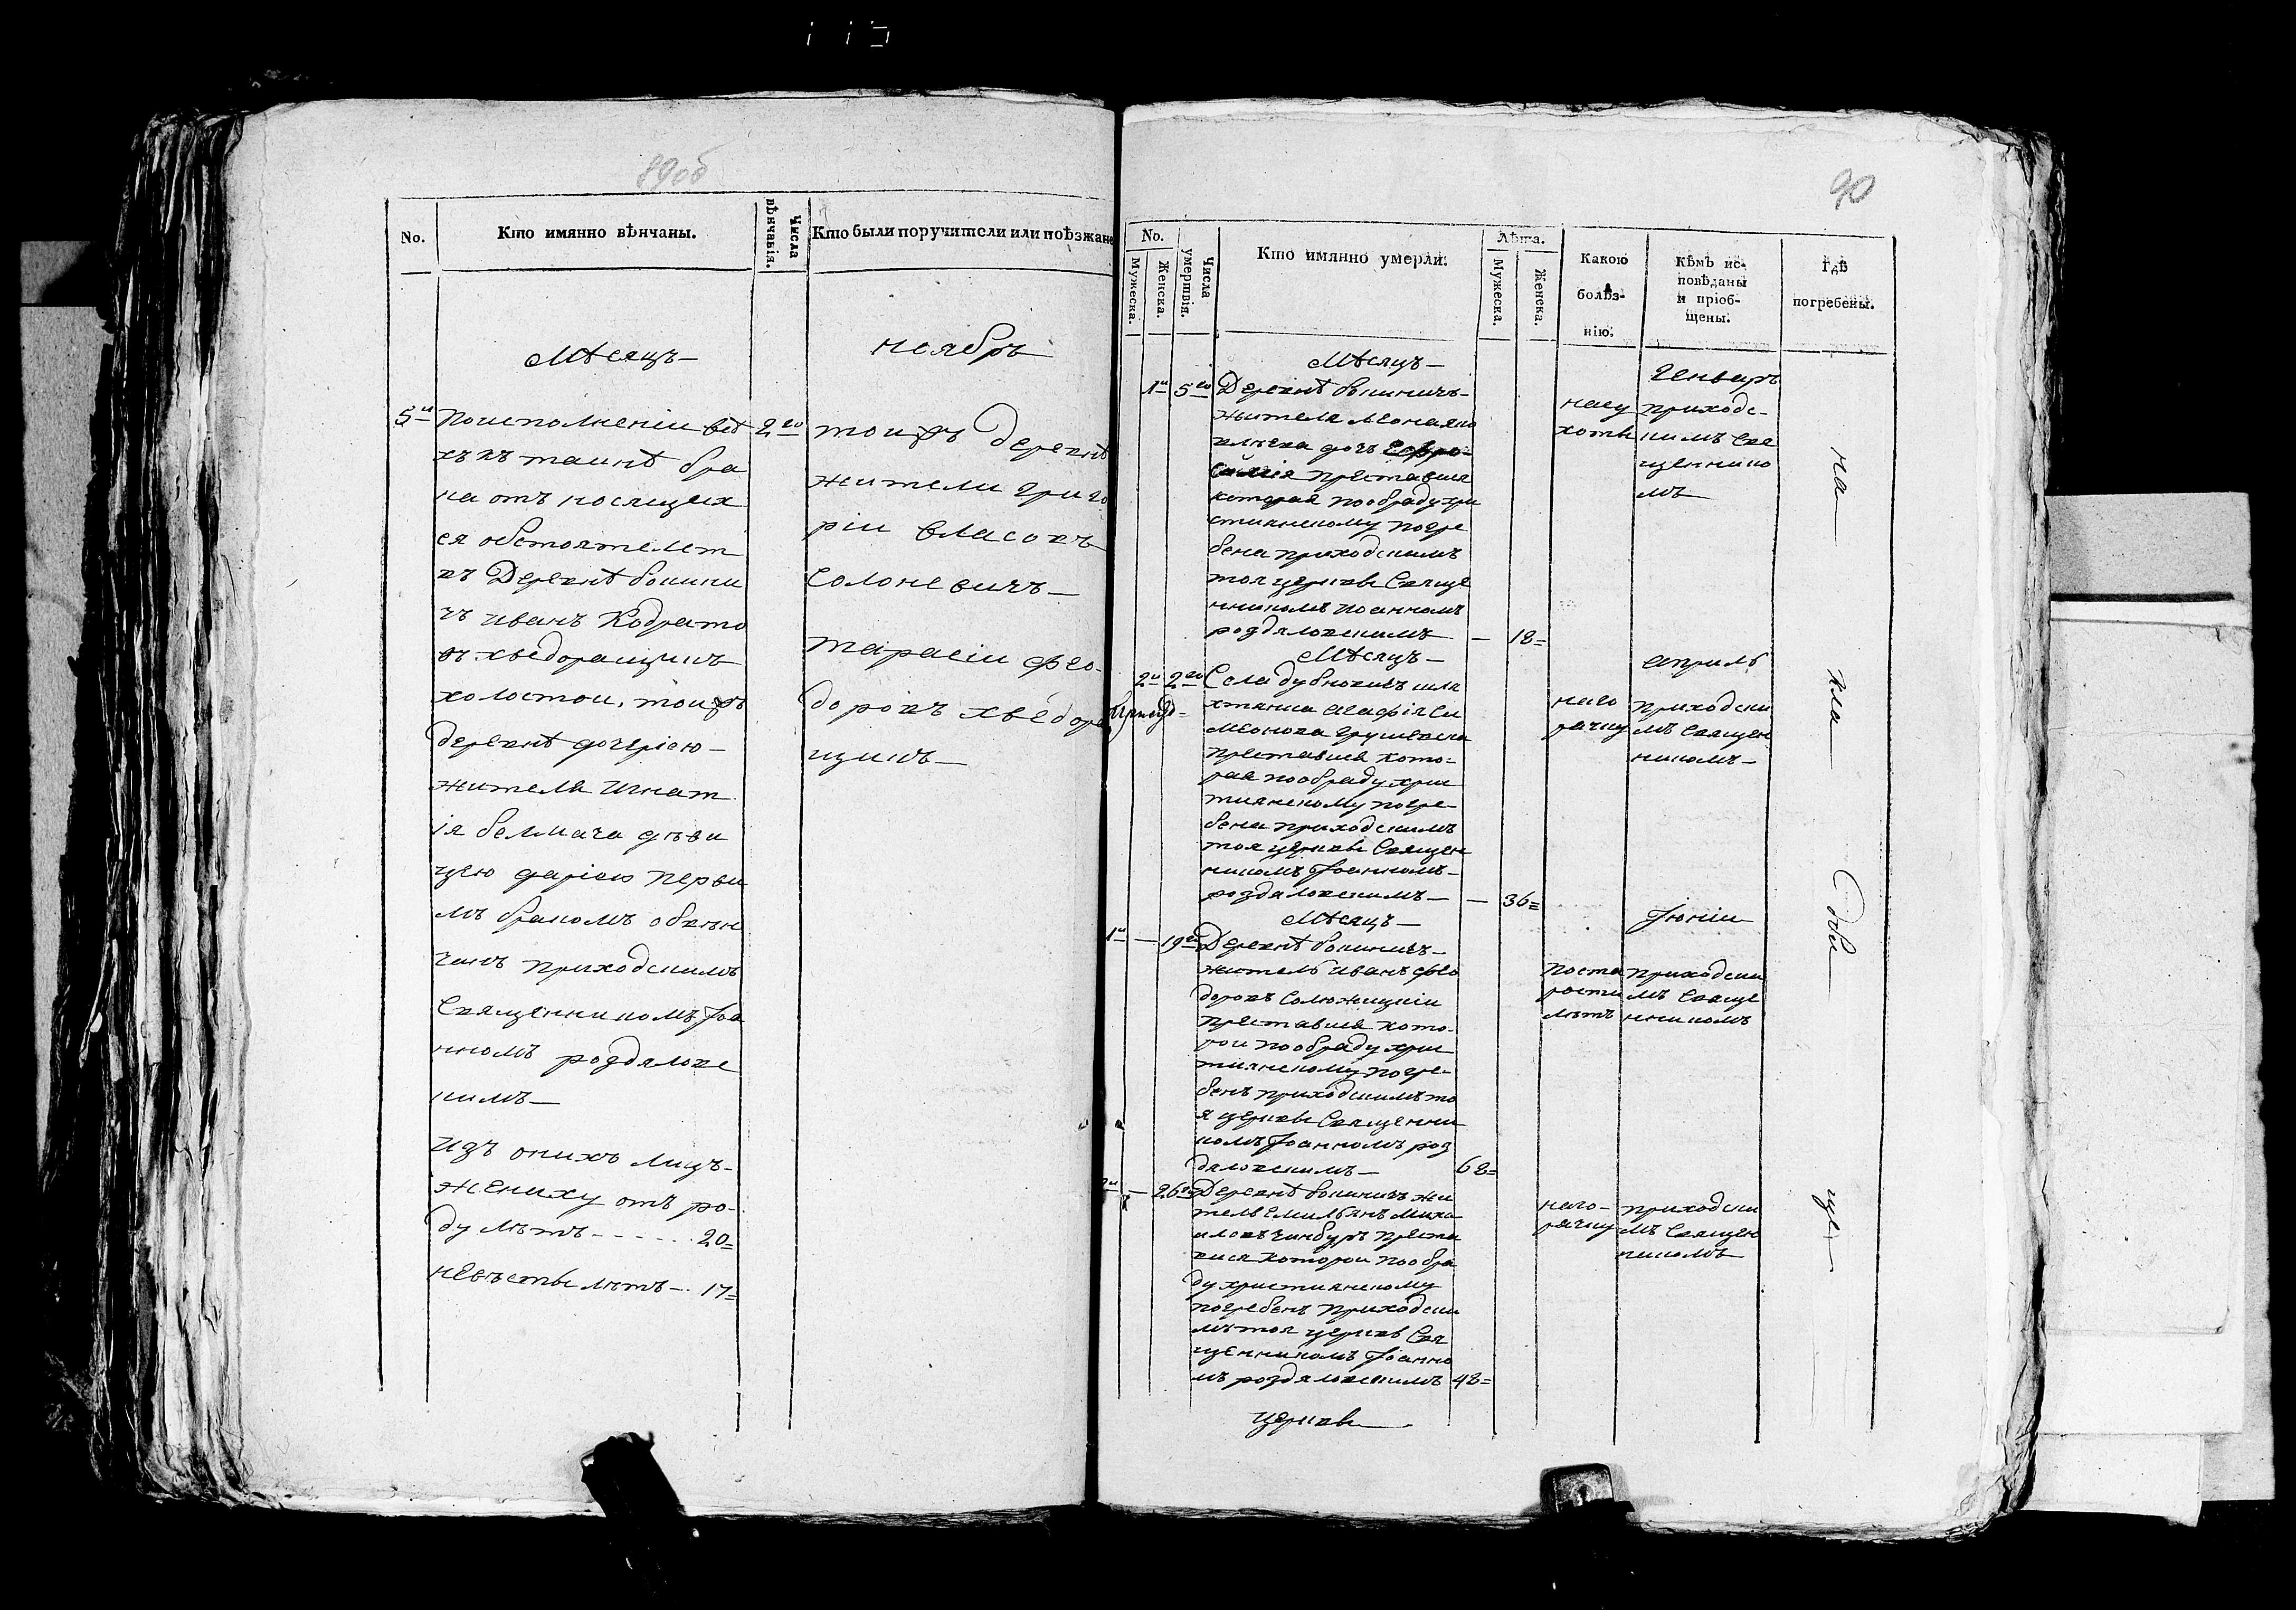 89об
No.
Кто имянно вѣнчаны.
Числа вѣнчанія.
Кто были поручители или поѣзжане
Мѣсяцъ—
ноябрь
5й
2го
По исполненіи всѣ
хъ къ таинѣ бра
ка относящих
ся обстоятелст
въ Деревнѣ
чъ иванъ Кодрато
въ хведоращикъ
холостой, тоижъ
деревнѣ дочерією—
жителя Игнат
ія белмача дѣви
цею дарією перви
мъ бракомъ обвѣн
чанъ приходскимъ
Священникомъ Іоа
нномъ роздялове
кимъ—
Изъ оныхъ лицъ—
жениху отъ ро-
ду лѣтъ- - - - - - 20=
невѣсты лѣтъ—. 17=
тоижъ деревнѣ
жители григо
ріи власовъ
Солоневичъ—
тарасіи фео-
доровъ хведора
щикъ—
90
No.
Мужеска.
Женска.
Числа умертвія.
Кто имянно умерли.
Лѣта.
Мужеска.
Женска.
Какою болѣз-
нію.
Кѣмъ ис-
повѣданы
и пріоб-
щены.
Гдѣ
погребены.
Мѣсяцъ—
Генварь
1й 5го
Деревнѣ
жителя
дочь Ефро-
синія преставися
которая по обряду хри
стиянскому погре
бена приходскимъ
тоя церкви Свяще
нникомъ Иоанномъ
роздяловскимъ — 18=
приходс-
кимъ Свя
щеннико
мъ
Мѣсяцъ—
априль
2й 2го
Села дубновичъ шля
хтянка агафія Си
меонова
преставися кото-
рая по обряду хри
тиянскому погре-
бена приходскимъ
тоя церкви Священ
никомъ Іоанномъ—
роздяловскимъ— — 36=
наго
рячку
приходски
мъ Священ
никомъ—
Мѣсяцъ—
Іюніи
1й — 19го
Деревнѣ
житель иванъ фео
доровъ
преставися кото-
рои по обряду хри
тиянскому погре-
бенъ приходскимъ то
я церкви Священни
комъ Іоанномъ роз
дяловскимъ— 68=
по ста
рости
лѣтъ
приходски
мъ Свяще
нникомъ
2й — 26го
Деревнѣ жи
тель Емильянъ Миха
иловъ преста
вися которои по обря
ду християнскому
погребенъ приходски
мъ тоя церкви Свя
щенникомъ Іоанно
мъ роздяловскимъ 48=
наго-
рячку
приходски
мъ Священ
никомъ
на
кла
дби
ще
церкви